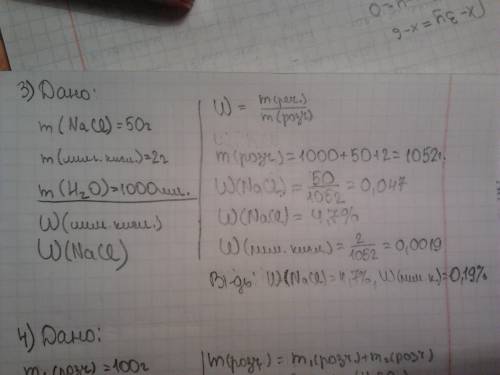 (x-3y=x-6
3) Дано:
m(NaCl)=50г
m(лим. кисл.)=2г
m(H₂O)=1000мл.
W(лим. кисл.)
W(NaCl)
W = m(реч.)/m(розч)
m(розч)=1000+50+2=1052г.
W(NaCl)=50/1052=0,047
W(NaCl)=4,7%
W(лим. кисл.)=2/1052=0,0019
Від-дь: W(NaCl)=4,7%, W(лим. к.)=0,19%
4) Дано:
m₁(розч)=100г
m(розч)= m₁(розч)+m₂(розч)